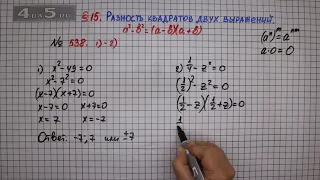 4 на 5
§ 15. Разность квадратов двух выражений.
a² - b² = (a - b)(a + b)
№ 538. 1) - 2)
(aⁿ)ᵐ = aⁿᵐ
a · 0 = 0
1) x² - 49 = 0
x² - 7² = 0
(x - 7)(x + 7) = 0
x - 7 = 0 x + 7 = 0
x = 7 x = -7
Ответ: -7; 7 или ±7
2) 1/4 - z² = 0
(1/2)² - z² = 0
(1/2 - z)(1/2 + z) = 0
1